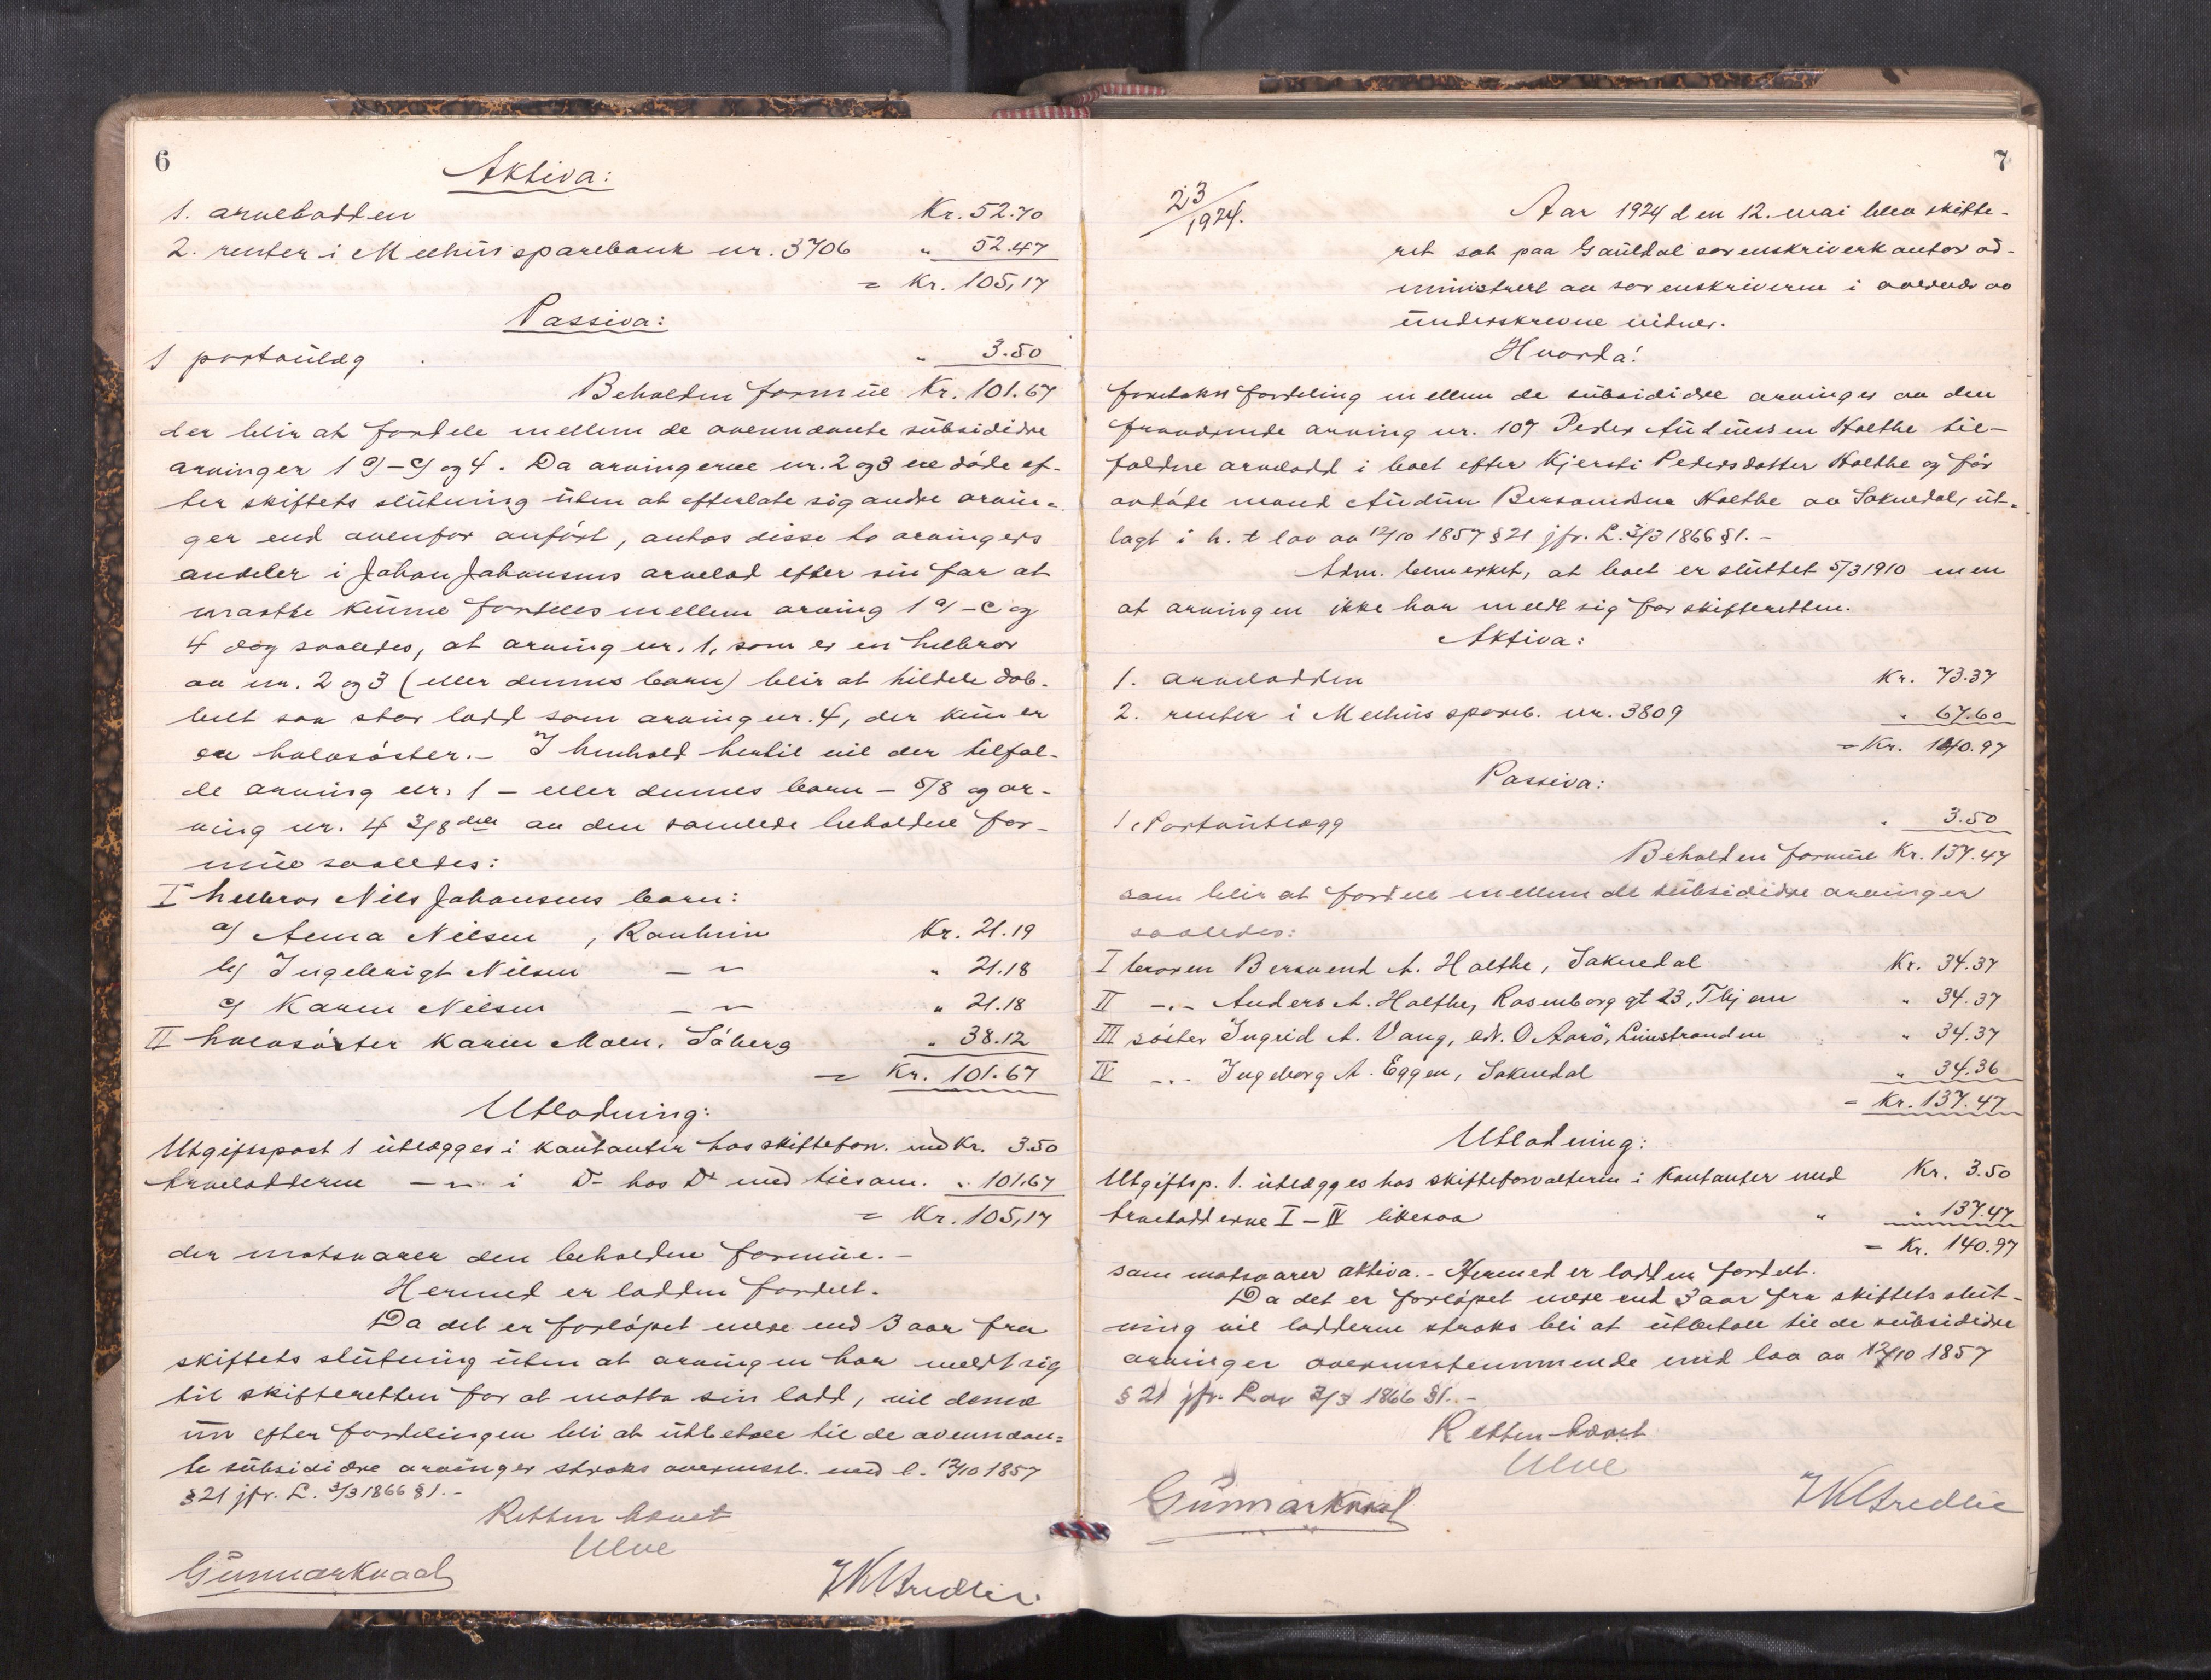 6
Aktiva:
1. arvelodden Kr. 52.70
2. renter i Melhus sparebank nr. 3706 " 52.47
= Kr. 105,17
Passiva:
1 portoutlæg " 3.50
Beholden formue Kr. 101.67
der blir at fordele mellem de ovennævnte subsidiære
arvinger 1 a) - c) og 4. Da arvingerne nr. 2 og 3 ere døde ef-
ter skiftets slutning uten at efterlate sig andre arvin-
ger end ovenfor anført, antas disse to arvingers
andeler i Johan Johansens arvelod efter sin far at
maatte kunne fordeles mellem arving 1 a) - c og
4 dog saaledes, at arving nr. 1, som er en helbror
av nr. 2 og 3 (eller dennes barn) blir at tildele dob-
belt saa stor lodd som arving nr. 4, der kun er
en halvsøster. - I henhold hertil vil der tilfal-
de arving nr. 1 - eller dennes barn - 5/8 og ar-
ving nr. 4 3/8 deler av den samlede beholdne for-
mue saaledes:
I helbror Nils Johansens barn:
a) Anna Nilsen , Ranheim Kr. 21.19
b) Ingebrigt Nilsen — " — " 21.18
c) Karen Nilsen — " — " 21.18
II halvsøster Karen Moen, Søberg " 38.12
= Kr. 101.67
Utlodning:
Utgiftspost 1 utlægges i kontanter hos skifteforv. med Kr. 3.50
Arvelodderne — " — i Do hos Do med tilsam. " 101.67
= Kr. 105,17
der motsvarer den beholdne formue. -
Hermed er lodden fordelt.
Da det er forløpet mere end 3 aar fra
skiftets slutning uten at arvingen har meldt sig
til skifteretten for at motta sin lodd, vil denne
nu efter fordelingen bli at utbetale til de ovennævn-
te subsidiære arvinger straks overensst. med l. 12/10 1857
§ 21 jfr. L. 3/3 1866 § 1. -
Retten hævet
Ulve
Gunnar Kvaal
7
23/1924.
Aar 1924 den 12. mai blev skifte-
ret sat paa Gauldal sorenskriverkontor ad-
ministrert av sorenskriveren i overvær av
underskrevne vidner.
Hvorda!
foretokes fordeling mellem de subsidiære arvinger av den
fraværende arving nr. 107 Peder Audunsen Holthe til-
faldne arvelodd i boet efter Kjersti Pedersdatter Holthe og før
avdøde mand Audun Bersvendsen Holthe av Soknedal, ut-
lagt i h. t lov av 12/10 1857 § 21 jfr. L. 3/3 1866 § 1. -
Adm. bemerket, at boet er sluttet 5/3 1910 men
at arvingen ikke har meldt sig for skifteretten.
Aktiva:
1. arvelodden Kr. 73.37
2. renter i Melhus spareb. nr. 3809 " 67.60
= Kr. 140.97
Passiva:
1. Portoutlægg " 3.50
Beholden formue Kr. 137.47
som blir at fordele mellem de subsidiære arvinger
saaledes:
I broren Bersvend A. Holthe, Soknedal Kr. 34.37
II -"- Anders A. Holthe, Rosenborg gt 23, Thjem " 34.37
III søster Ingrid A. Vang, adr. O Aarø, Linstranden " 34.37
IV -"- Ingeborg A. Eggen, Soknedal " 34.36
= Kr. 137.47
Utlodning:
Utgiftsp. 1. utlægges hos skifteforvalteren i kontanter med Kr. 3.50
Arvelodderne I - IV likesaa " " 137.47
= Kr. 140.97
som motsvarer aktiva. - Hermed er lodden fordelt.
Da det er forløpet mere end 3 aar fra skiftets slut-
ning vil lodderne straks bli at utbetale til de subsidiære
arvinger overensstemmende med lov av 12/10 1857
§ 21 jfr. Lov 3/3 1866 § 1. -
Retten hævet
Ulve
Gunnar Kvaal